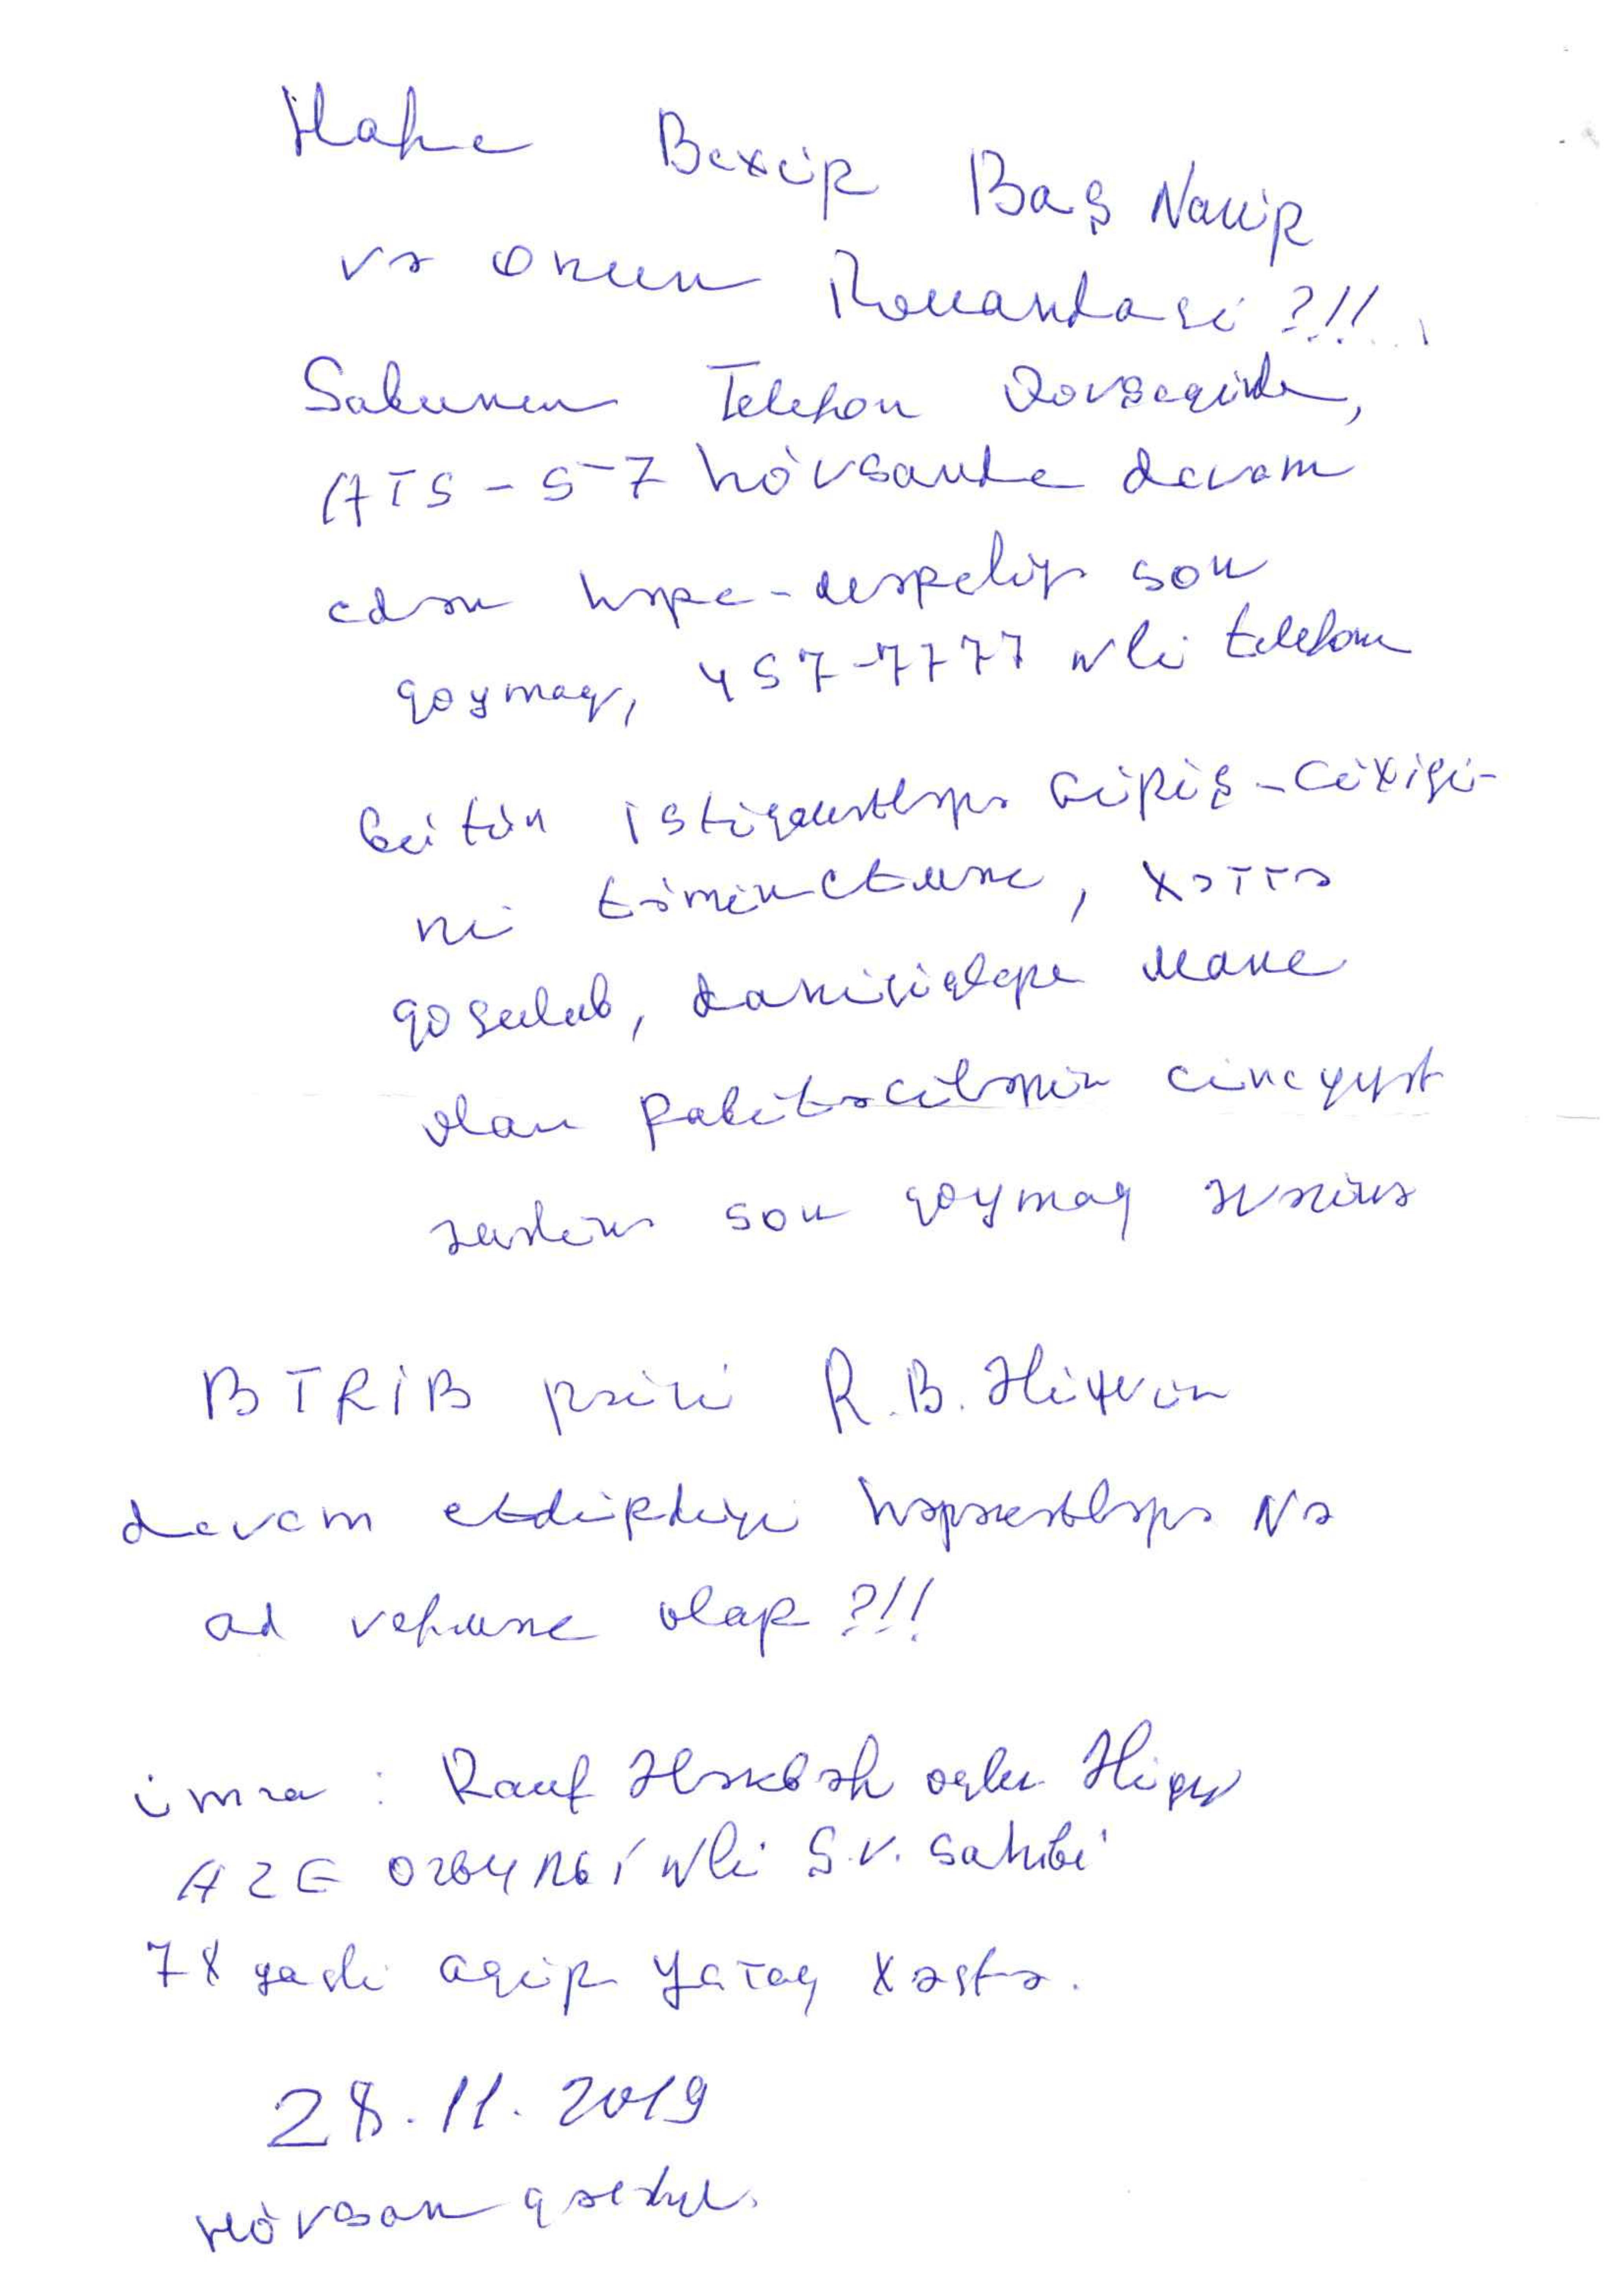 Baş Nazir
və onun Komandası ?!!
Telefon Qovşağında,
ATS-57 Hövsanda davam
edən hərc-mərcliyə son
qoymaq, 457-7777 №li telefon
bütün istiqamətlərə giriş-çıxışı-
nı, xəttə
qoşulub, danışıqlara mane
olan rabitəçilərin cinayət
son qoymaq əvəzinə
BTRİB rəisi R.B. Əliyevin
davam etdirdiyi hərəkətlərə Nə
ad olar ?!!
imza : Rauf Ələkbər oğlu Əliyev
AZE №li Ş.V. sahibi
78 yaşlı ağır yataq xəstə.
28.11.2019
Hövsan qəsəbə.